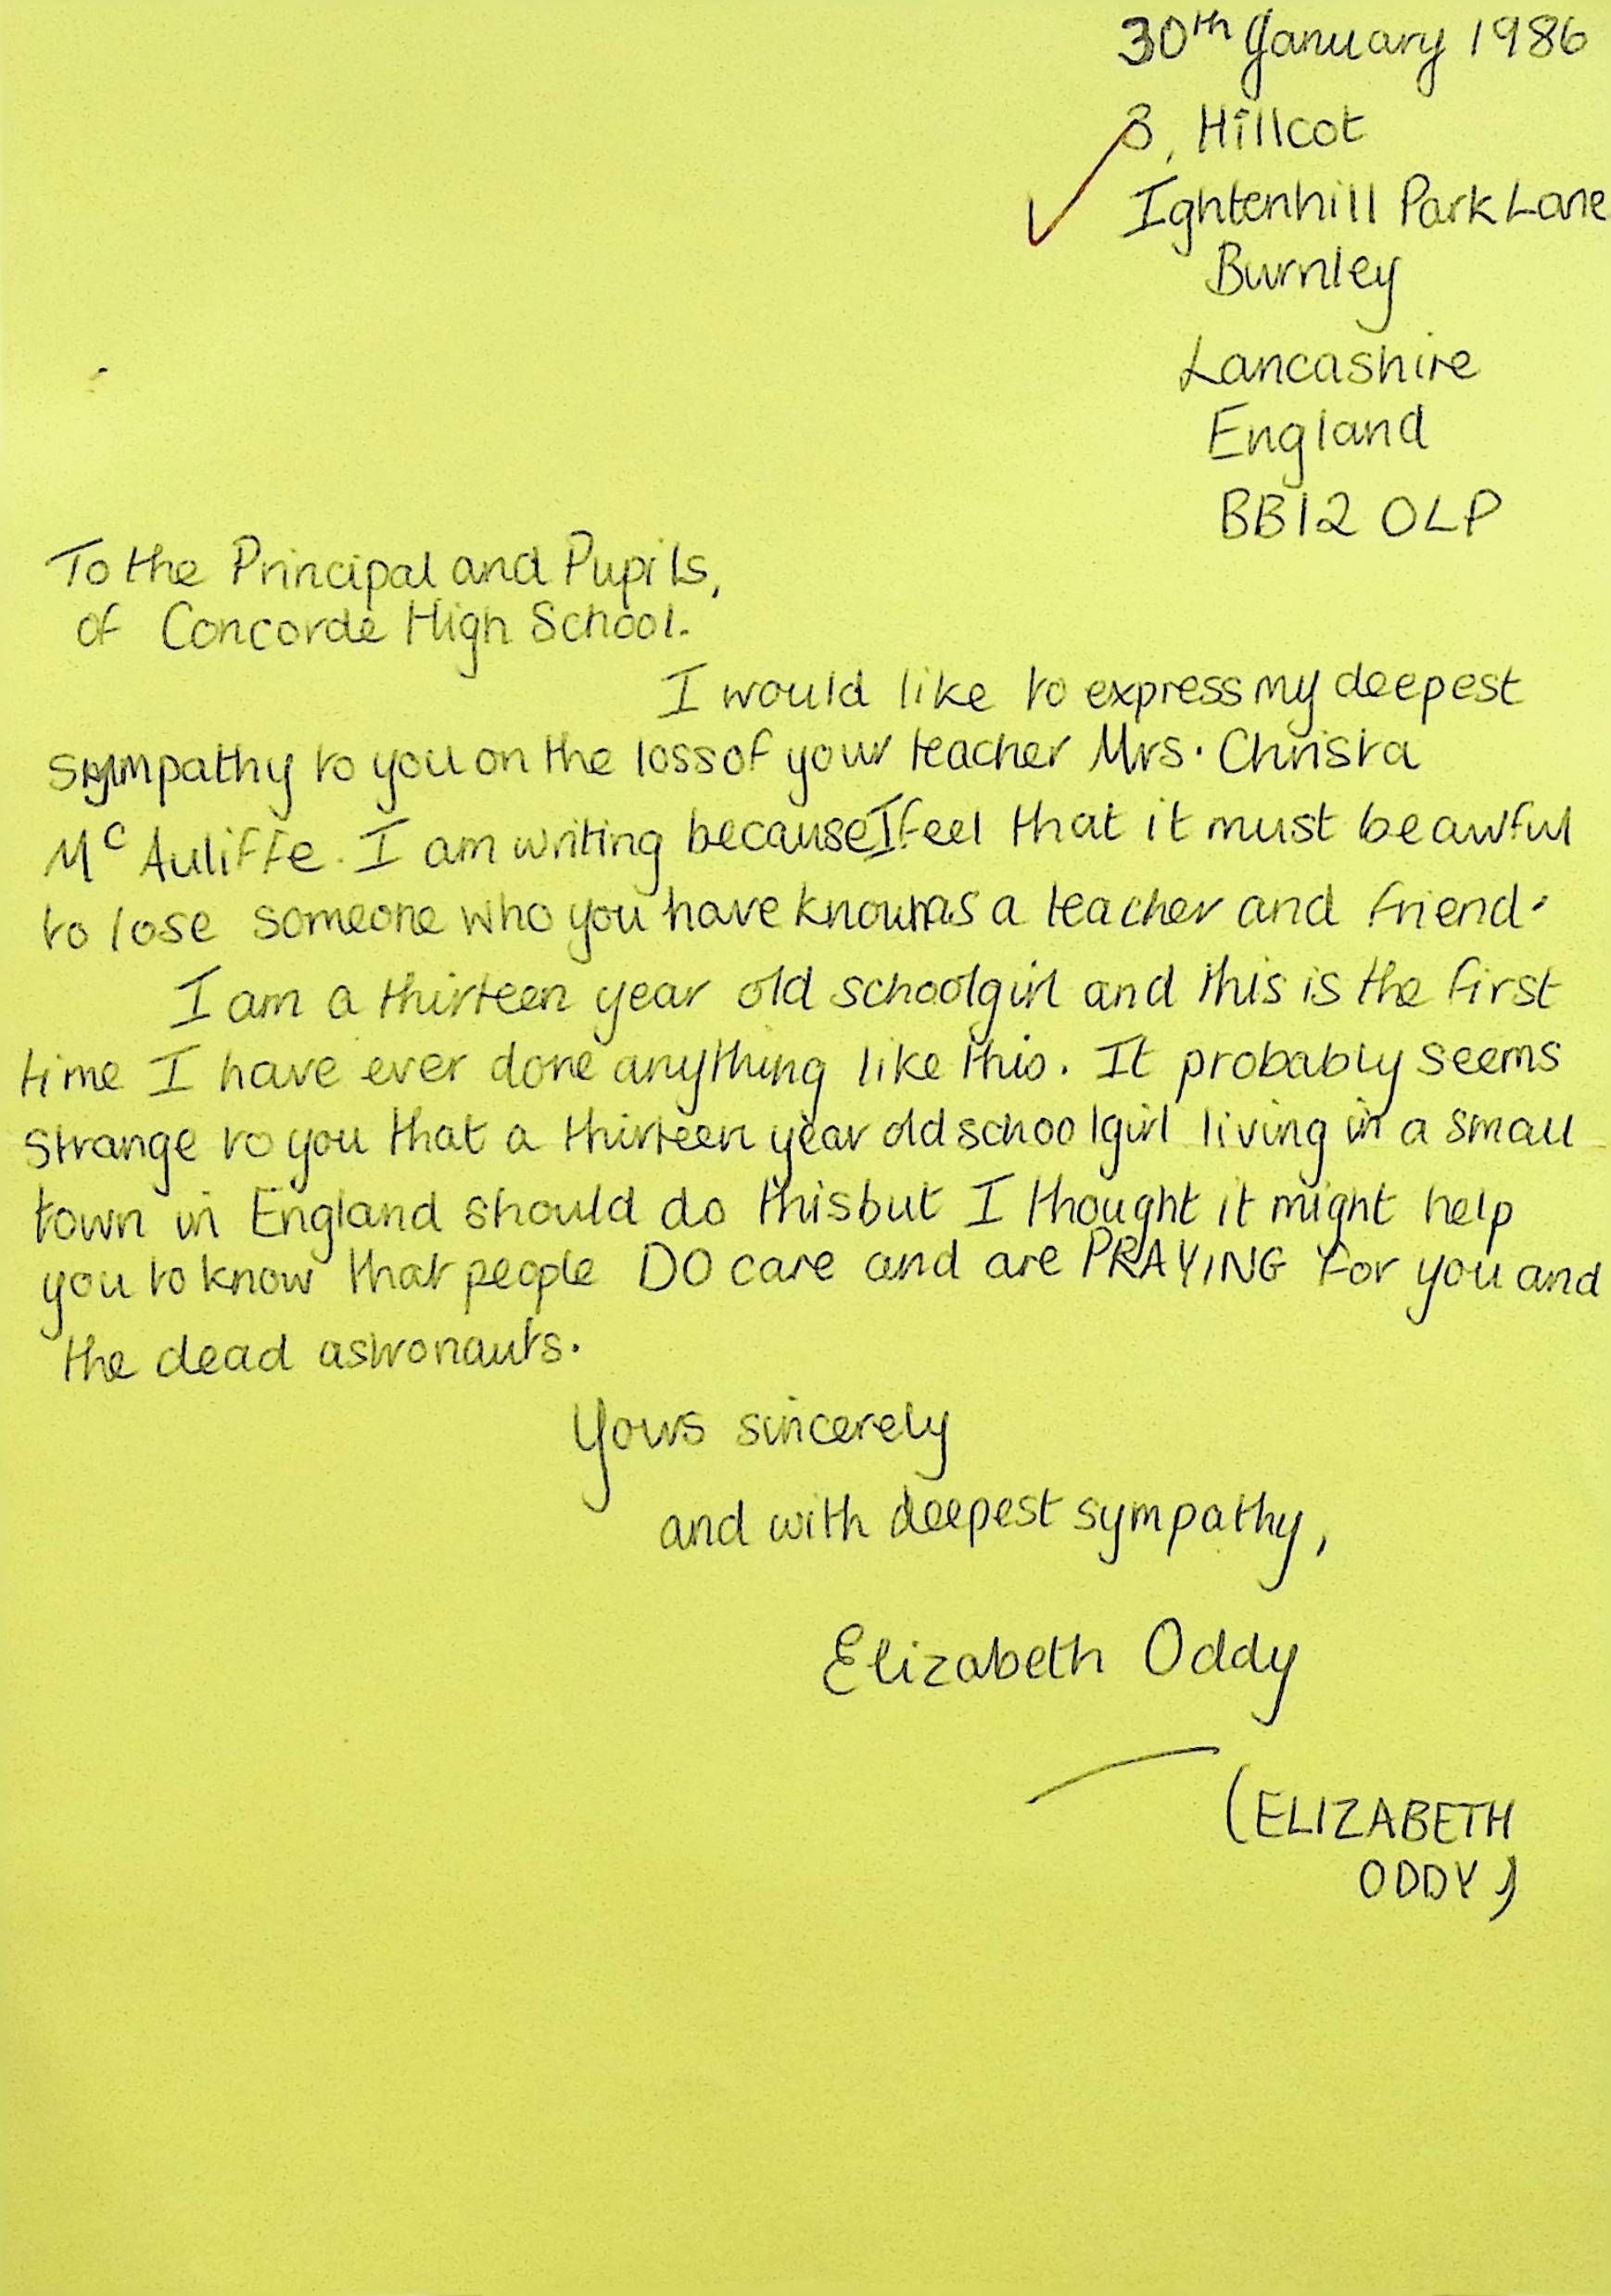 30th January 1986
3, Hillcot
Ightenhill Park Lane
Burnley
Lancashire
England
BB12 0LP
To the Principal and Pupils,
of Concorde High School.
I would like to express my deepest
sympathy to you on the loss of your teacher Mrs. Christa
McAuliffe. I am writing because I feel that it must be awful
to lose someone who you have known as a teacher and friend.
I am a thirteen year old schoolgirl and this is the first
time I have ever done anything like this. It probably seems
strange to you that a thirteen year old schoolgirl living in a small
town in England should do this but I thought it might help
you to know that people DO care and are PRAYING for you and
the dead astronauts.
Yours sincerely
and with deepest sympathy,
Elizabeth Oddy
(ELIZABETH
ODDY)